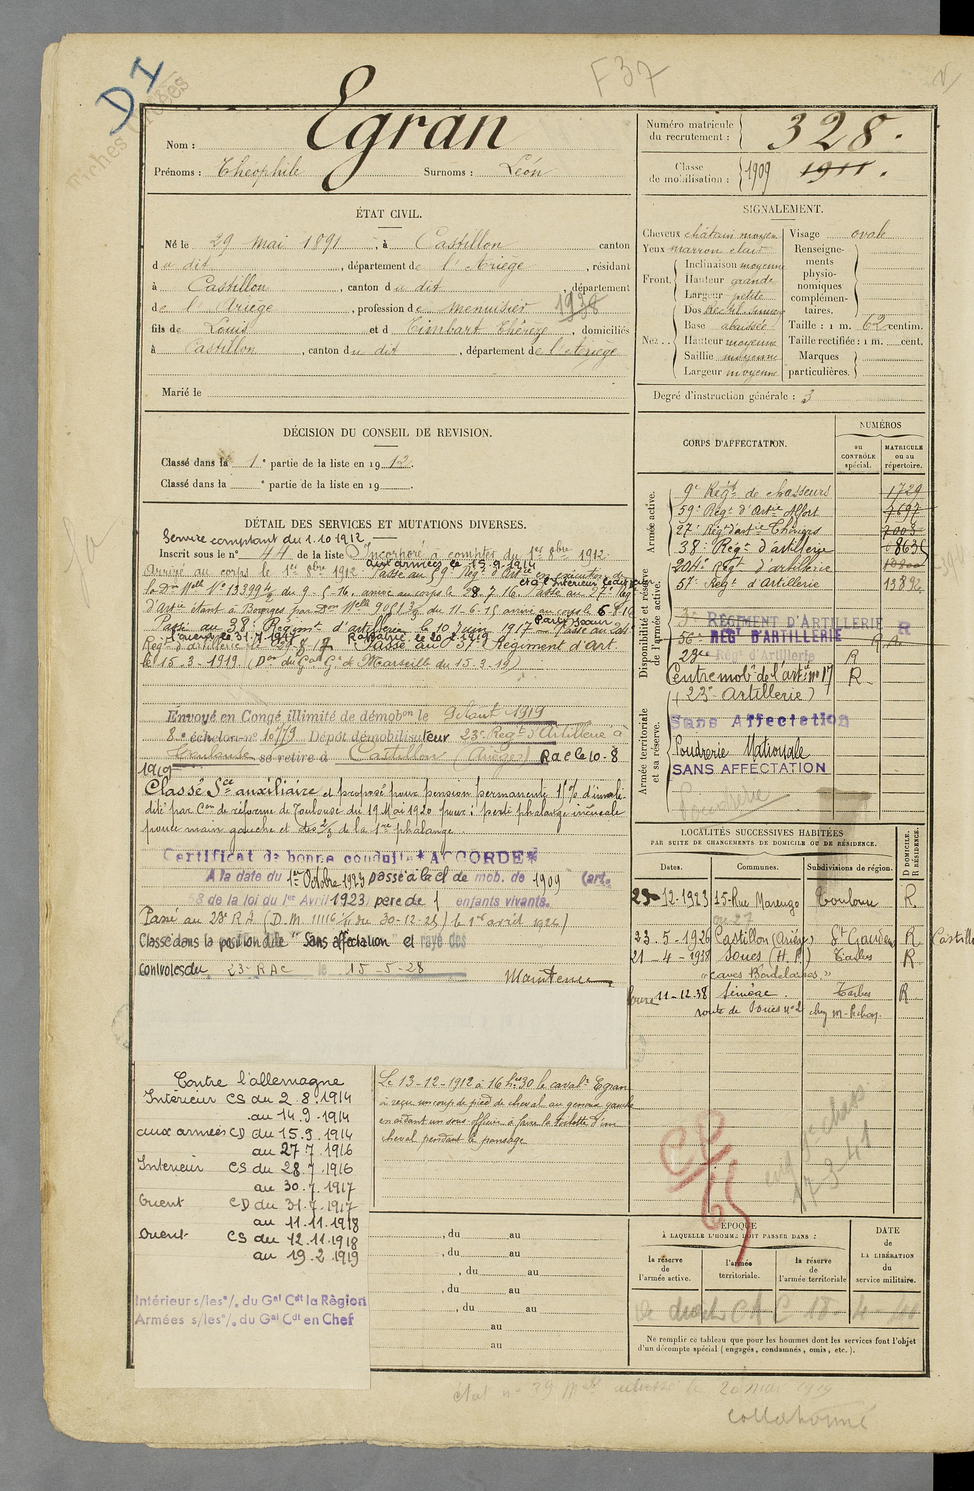 DI
F37
Nom : Egran
Prénoms : Théophile Surnoms : Léon
Numéro matricule du recrutement : 328.
Classe de mobilisation : 1909 1911.
ÉTAT CIVIL.
Né le 29 mai 1891, à Castillon canton
du dit, département de l'Ariège, résidant
à Castillon, canton du dit, département
de l'Ariège, profession de menuisier 1938
fils de Louis et d Timbart Thérèze, domiciliés
à Castillon, canton du dit, département de l'Ariège
Marié le
SIGNALEMENT.
Cheveux châtain moyen Visage ovale
Yeux marron clair
Front. Inclinaison moyenne
Hauteur grande
Largeur petite
Nez.. Dos Rectil. sinueux
Base abaissée
Hauteur moyenne
Saillie moyenne
Largeur moyenne
Renseignements physionomiques complémentaires.
Taille : 1 m. 62 centim.
Taille rectifiée : 1 m. cent.
Marques particulières.
Degré d'instruction générale : 3
DÉCISION DU CONSEIL DE REVISION.
Classé dans la 1e partie de la liste en 1912.
Classé dans la e partie de la liste en 19
DÉTAIL DES SERVICES ET MUTATIONS DIVERSES.
Service comptant du 1.10 1912
Inscrit sous le n° 44 de la liste Incorporé à compter du 1er 8bre 1912.
aux armées le 15.9.1914
Arrivé au corps le 1er 8bre 1912. Passé au 59e Régt d'Artie en exécution de
la Don Melle N° 13399 du 9-5-16, arrivé au corps le 28.7.16. Passé au 27e Régt
d'Artie étant à Bourges par Don Melle 9051 du 11-6-15 arrivé au corps le
Passé au 38e Régiment d'artillerie le 10 Juin 1917 Passé au 204
Rapatrié le 20-2-1919
Régt d'artillerie Passé au 57e Régiment d'art.
le 15-3-1919 (Don du Gal Gr de Marseille du 15-3-19)
Envoyé en Congé illimité de démobon le 9 Août 1919
8e échelon n° 10779 Dépôt démobilisateur 23e Régt d'Artillerie à
Toulouse se retire à Castillon (Ariège) Rac le 10-8
1919
Classé Sce auxiliaire et proposé pour pension permanente 1% d'invali-
dité par Con de réforme de Toulouse du 19 Mai 1920 pour : perte phalange inguéale
pouce main gauche et des 2/3 de la 1re phalange.
Certificat de bonne conduite *ACCORDÉ*
A la date du 1er Octobre 1923 passé à la cl de mob. de 1909 (art.
58 de la loi du 1er Avril 1923, père de 1 enfants vivants.
Passé au 23e RA (D.M. 11116 du 30-12-25) le 1er avril 1926)
Classé dans la position dite "Sans affectation" et rayé des
controles du 23e RAC le 15-5-28
Maintenu
CORPS D'AFFECTATION.
NUMÉROS
au CONTRÔLE spécial.
MATRICULE ou au répertoire.
Armée active.
9e Régt de chasseurs 1729
59e Régt d'Artie
27e Régt d'artie
38e Régt d'artillerie
204e Régt d'artillerie
57e Régt d'Artillerie 13892
Disponibilité et réserve de l'armée active.
RÉGIMENT D'ARTILLERIE R
56e RÉGt D'ARTILLERIE
23me Régt d'Artillerie R
Centre mobre de l'artie n° 17 R
(23e Artillerie)
Armée territoriale et sa réserve.
Sans Affectation
Poudrerie Nationale
SANS AFFECTATION
Poudrerie
LOCALITÉS SUCCESSIVES HABITÉES
PAR SUITE DE CHANGEMENTS DE DOMICILE OU DE RÉSIDENCE.
Dates. Communes. Subdivisions de région. D DOMICILE. R RÉSIDENCE.
23-12-1923 15 Rue Marengo Toulouse R
23-5-1926 Castillon (Ariège) St Gaudens R
21-4-1938 Soues (H.P.) Tarbes R
"caves Bordelaises"
11-12-38 Séméac. Tarbes R
route de Soues n°2
Contre l'allemagne
Intérieur CS du 2.8.1914
au 14.9.1914
aux armées CD du 15.9.1914
au 27.7.1916
Intérieur CS du 28.7.1916
au 30.7.1917
Orient CD du 31.7.1917
au 11.11.1918
Orient CS du 12.11.1918
au 19.2.1919
Intérieur s/les°/. du Gal Cdt la Région
Armées s/les°/. du Gal Cdt en Chef
Le 13-12-1912 à 16h30 le cavalr Egran
a reçu un coup de pied de cheval au genou gauche
en aidant un sous-officier à faire la toilette d'un
cheval pendant le pansage
, du au
, du au
, du au
, du au
, du au
au
au
ÉPOQUE
À LAQUELLE L'HOMME DOIT PASSER DANS :
la réserve de l'armée active.
l'armée territoriale.
la réserve de l'armée territoriale
DATE de LA LIBÉRATION du service militaire.
Ne remplir ce tableau que pour les hommes dont les services font l'objet
d'un décompte spécial (engagés, condamnés, omis, etc.).
collationné